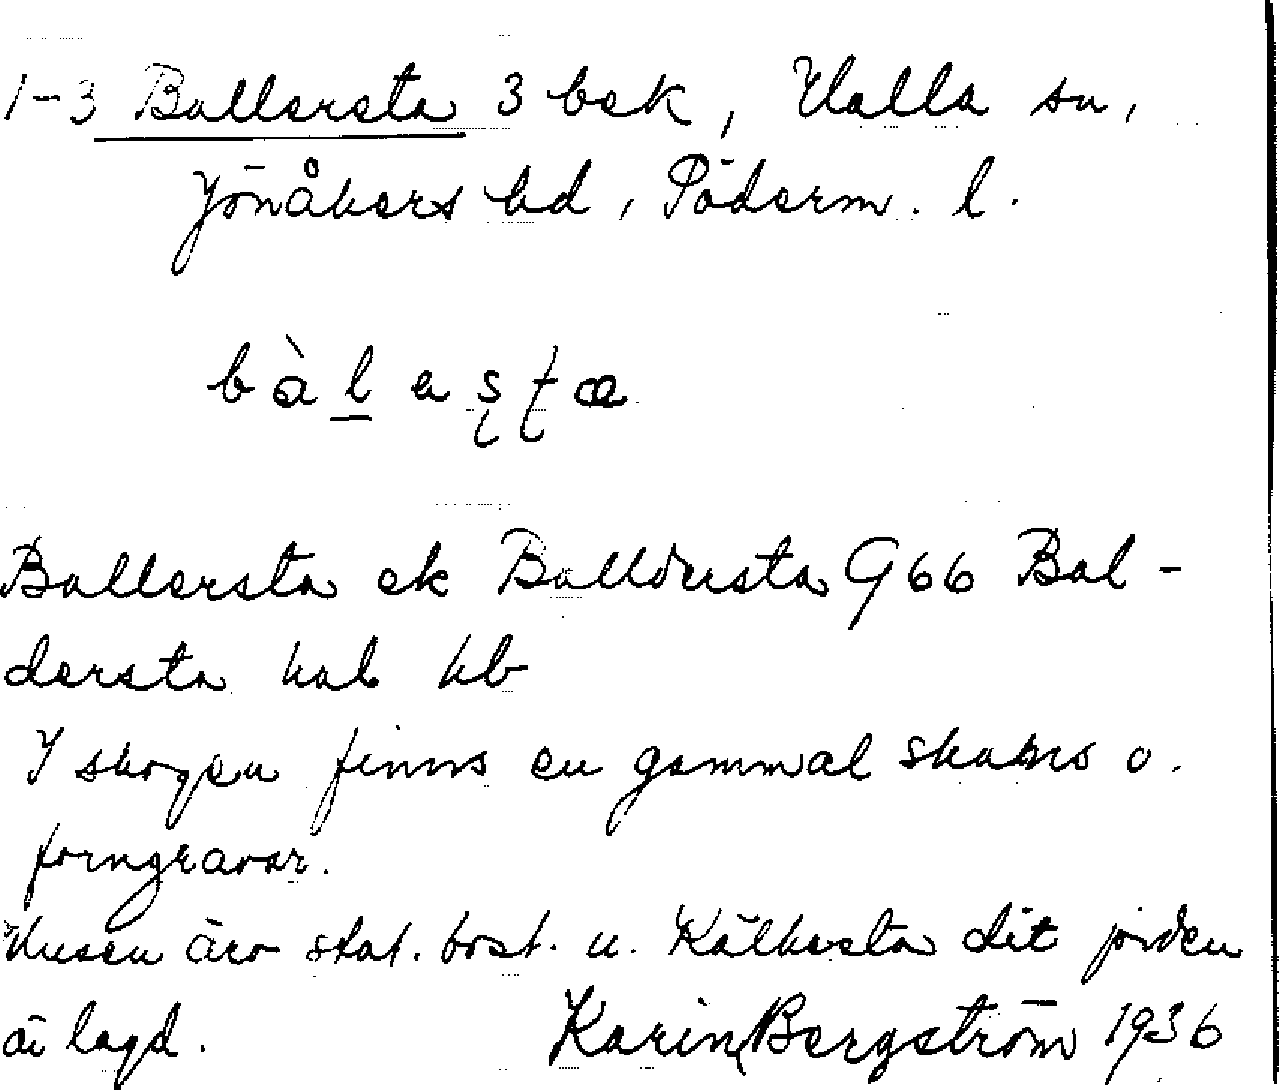 1-3 Ballersta 3 bek, Halla sn,
Jönåkers hd, Söderm. l.
bàl̲aṣṭa
Ballersta ek Balldersta G66 Bal-
dersta hab kb
I skogen finns en gammal skans o.
forngravar.
Husen äro stat. bost. u. Kälkesta dit jorden
är lagd. Karin Bergström 1936